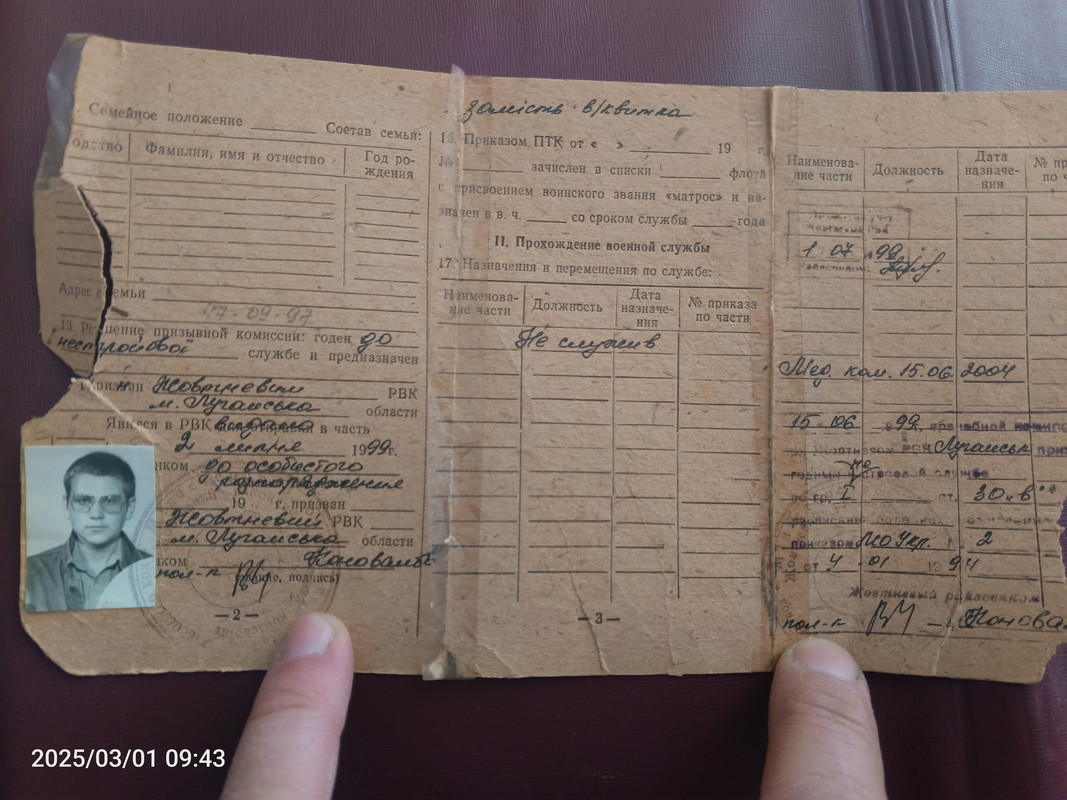 Семейное положение
Состав семьи:
Фамилия, имя и отчество
Год ро-
ждения
Адрес семьи
17-09-97
13. Решение призывной комиссии: годен до
нестройовой службе и предназначен
Жовтневим РВК
м. Луганська области
Явился в РВК видано отправки в часть
2 липня 1999г.
до особистого
19 г. призван
Жовтневий РВК
м. Луганська области
пол-к
(звание, подпись)
— 2 —
замість в/квитка
16. Приказом ПТК от « » 19 г.
№ зачислен в списки флота
с присвоением воинского звания «матрос» и на-
значен в в. ч. со сроком службы года
II. Прохождение военной службы
17. Назначения и перемещения по службе:
Наименова-
ние части
Должность
Дата
назначе-
ния
№ приказа
по части
Не служив
— 3 —
Наименова-
ние части
Должность
Дата
назначе-
ния
№ пр
по ч
1 07 99
Мед. ком. 15.06.2004
15-06 99 врачебной
РВК Луганськ
годным не
службе
гр. I ст. 30-в
приказом МО Укр. 2
от 4 01 1994
Жовтневый райвоенком
пол-к
2025/03/01 09:43